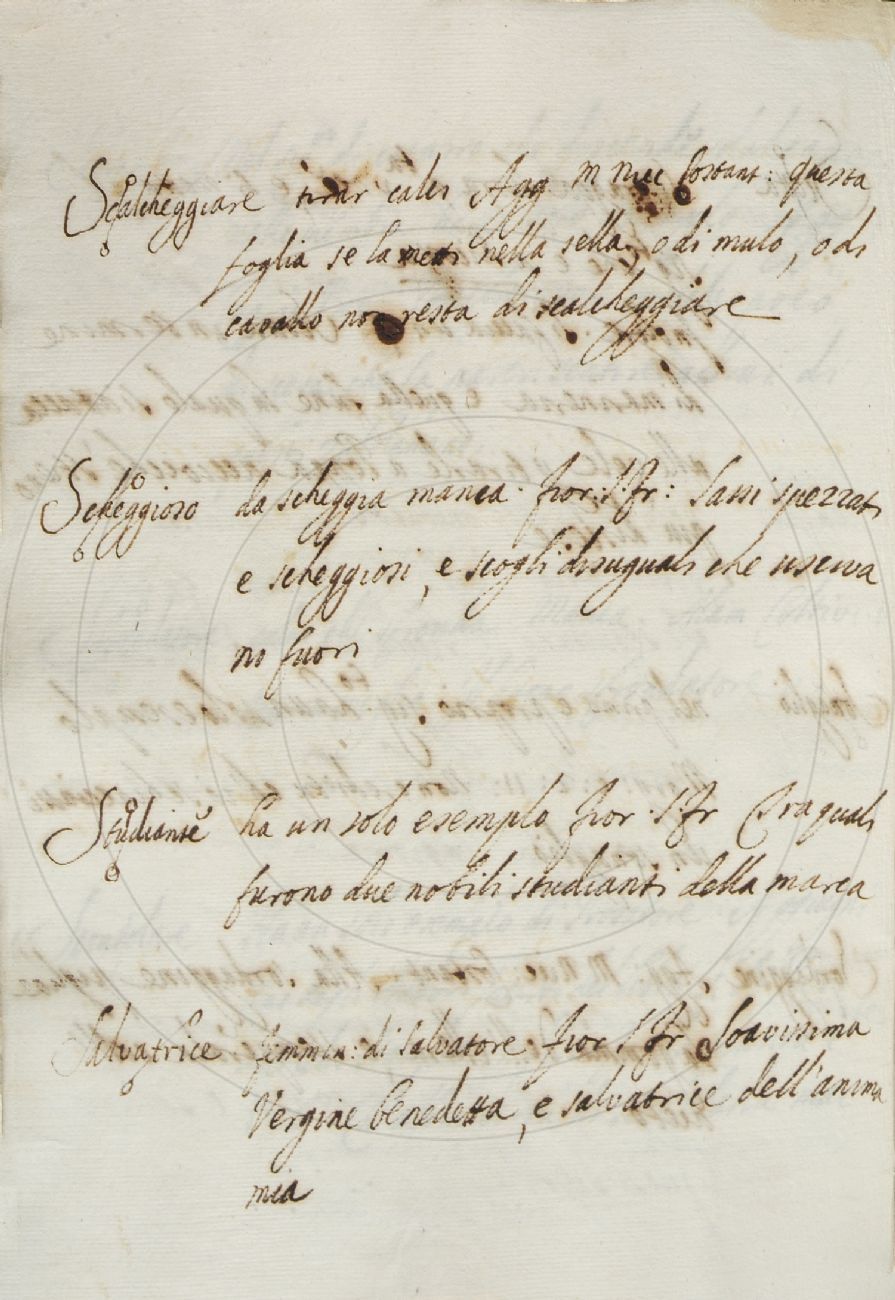 Scalcheggiare tirar calci Agg M Nicc Costant: questa
foglia se la metti nella sella, o di mulo, o di
cavallo non resta di scalcheggiare
Scheggioso da scheggia manca. fior: S. Fr: Sassi spezzati
e scheggiosi, e scogli disuguali che usceva
no fuori
Studiante ha un solo esempio fior. S. Fr Tra quali
furono due nobili studianti della marca
Salvatrice femmin: di salvatore fior S Fr Soavissima
Vergine benedetta, e salvatrice dell'anima
mia